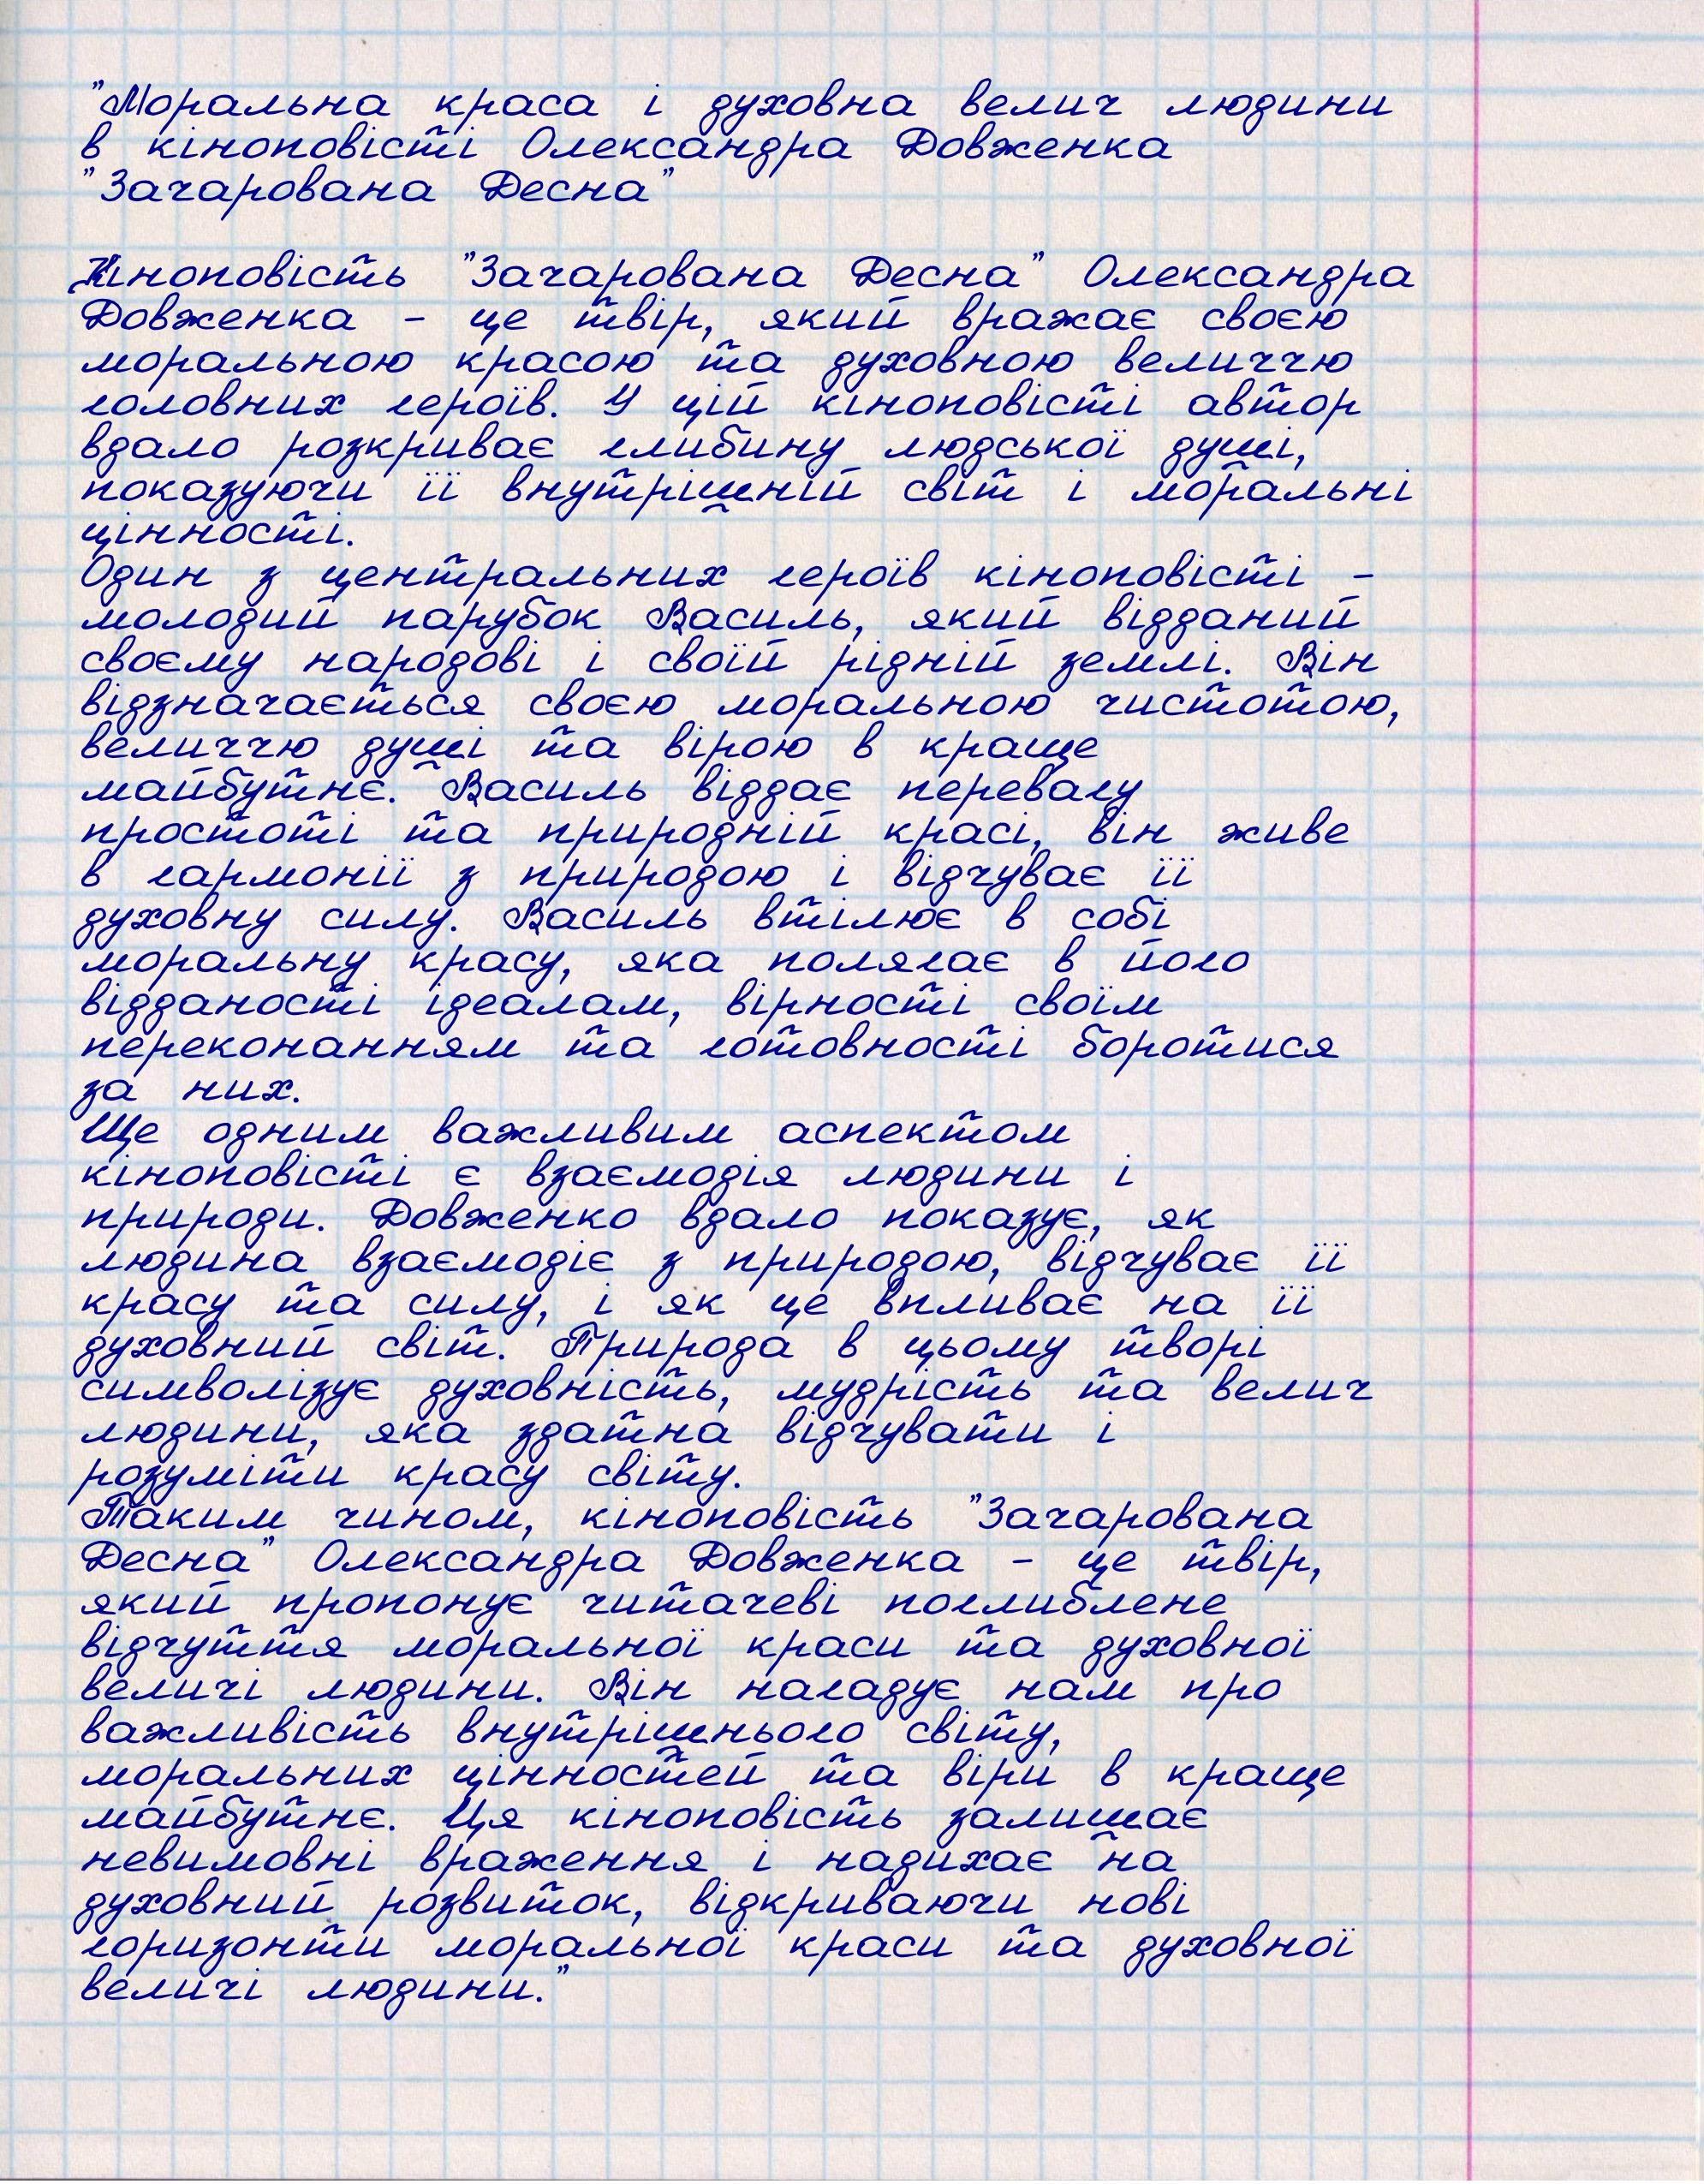 "Моральна краса і духовна велич людини
в кіноповісті Олександра Довженка
"Зачарована Десна"
Кіноповість "Зачарована Десна" Олександра
Довженка - це твір, який вражає своєю
моральною красою та духовною величчю
головних героїв. У цій кіноповісті автор
вдало розкриває глибину людської душі,
показуючи її внутрішній світ і моральні
цінності.
Один з центральних героїв кіноповісті -
молодий парубок Василь, який відданий
своєму народові і своїй рідній землі. Він
відзначається своєю моральною чистотою,
величчю душі та вірою в краще
майбутнє. Василь віддає перевагу
простоті та природній красі, він живе
в гармонії з природою і відчуває її
духовну силу. Василь втілює в собі
моральну красу, яка полягає в його
відданості ідеалам, вірності своїм
переконанням та готовності боротися
за них.
Ще одним важливим аспектом
кіноповісті є взаємодія людини і
природи. Довженко вдало показує, як
людина взаємодіє з природою, відчуває її
красу та силу, і як це впливає на її
духовний світ. Природа в цьому творі
символізує духовність, мудрість та велич
людини, яка здатна відчувати і
розуміти красу світу.
Таким чином, кіноповість "Зачарована
Десна" Олександра Довженка - це твір,
який пропонує читачеві поглиблене
відчуття моральної краси та духовної
величі людини. Він нагадує нам про
важливість внутрішнього світу,
моральних цінностей та віри в краще
майбутнє. Ця кіноповість залишає
невимовні враження і надихає на
духовний розвиток, відкриваючи нові
горизонти моральної краси та духовної
величі людини."